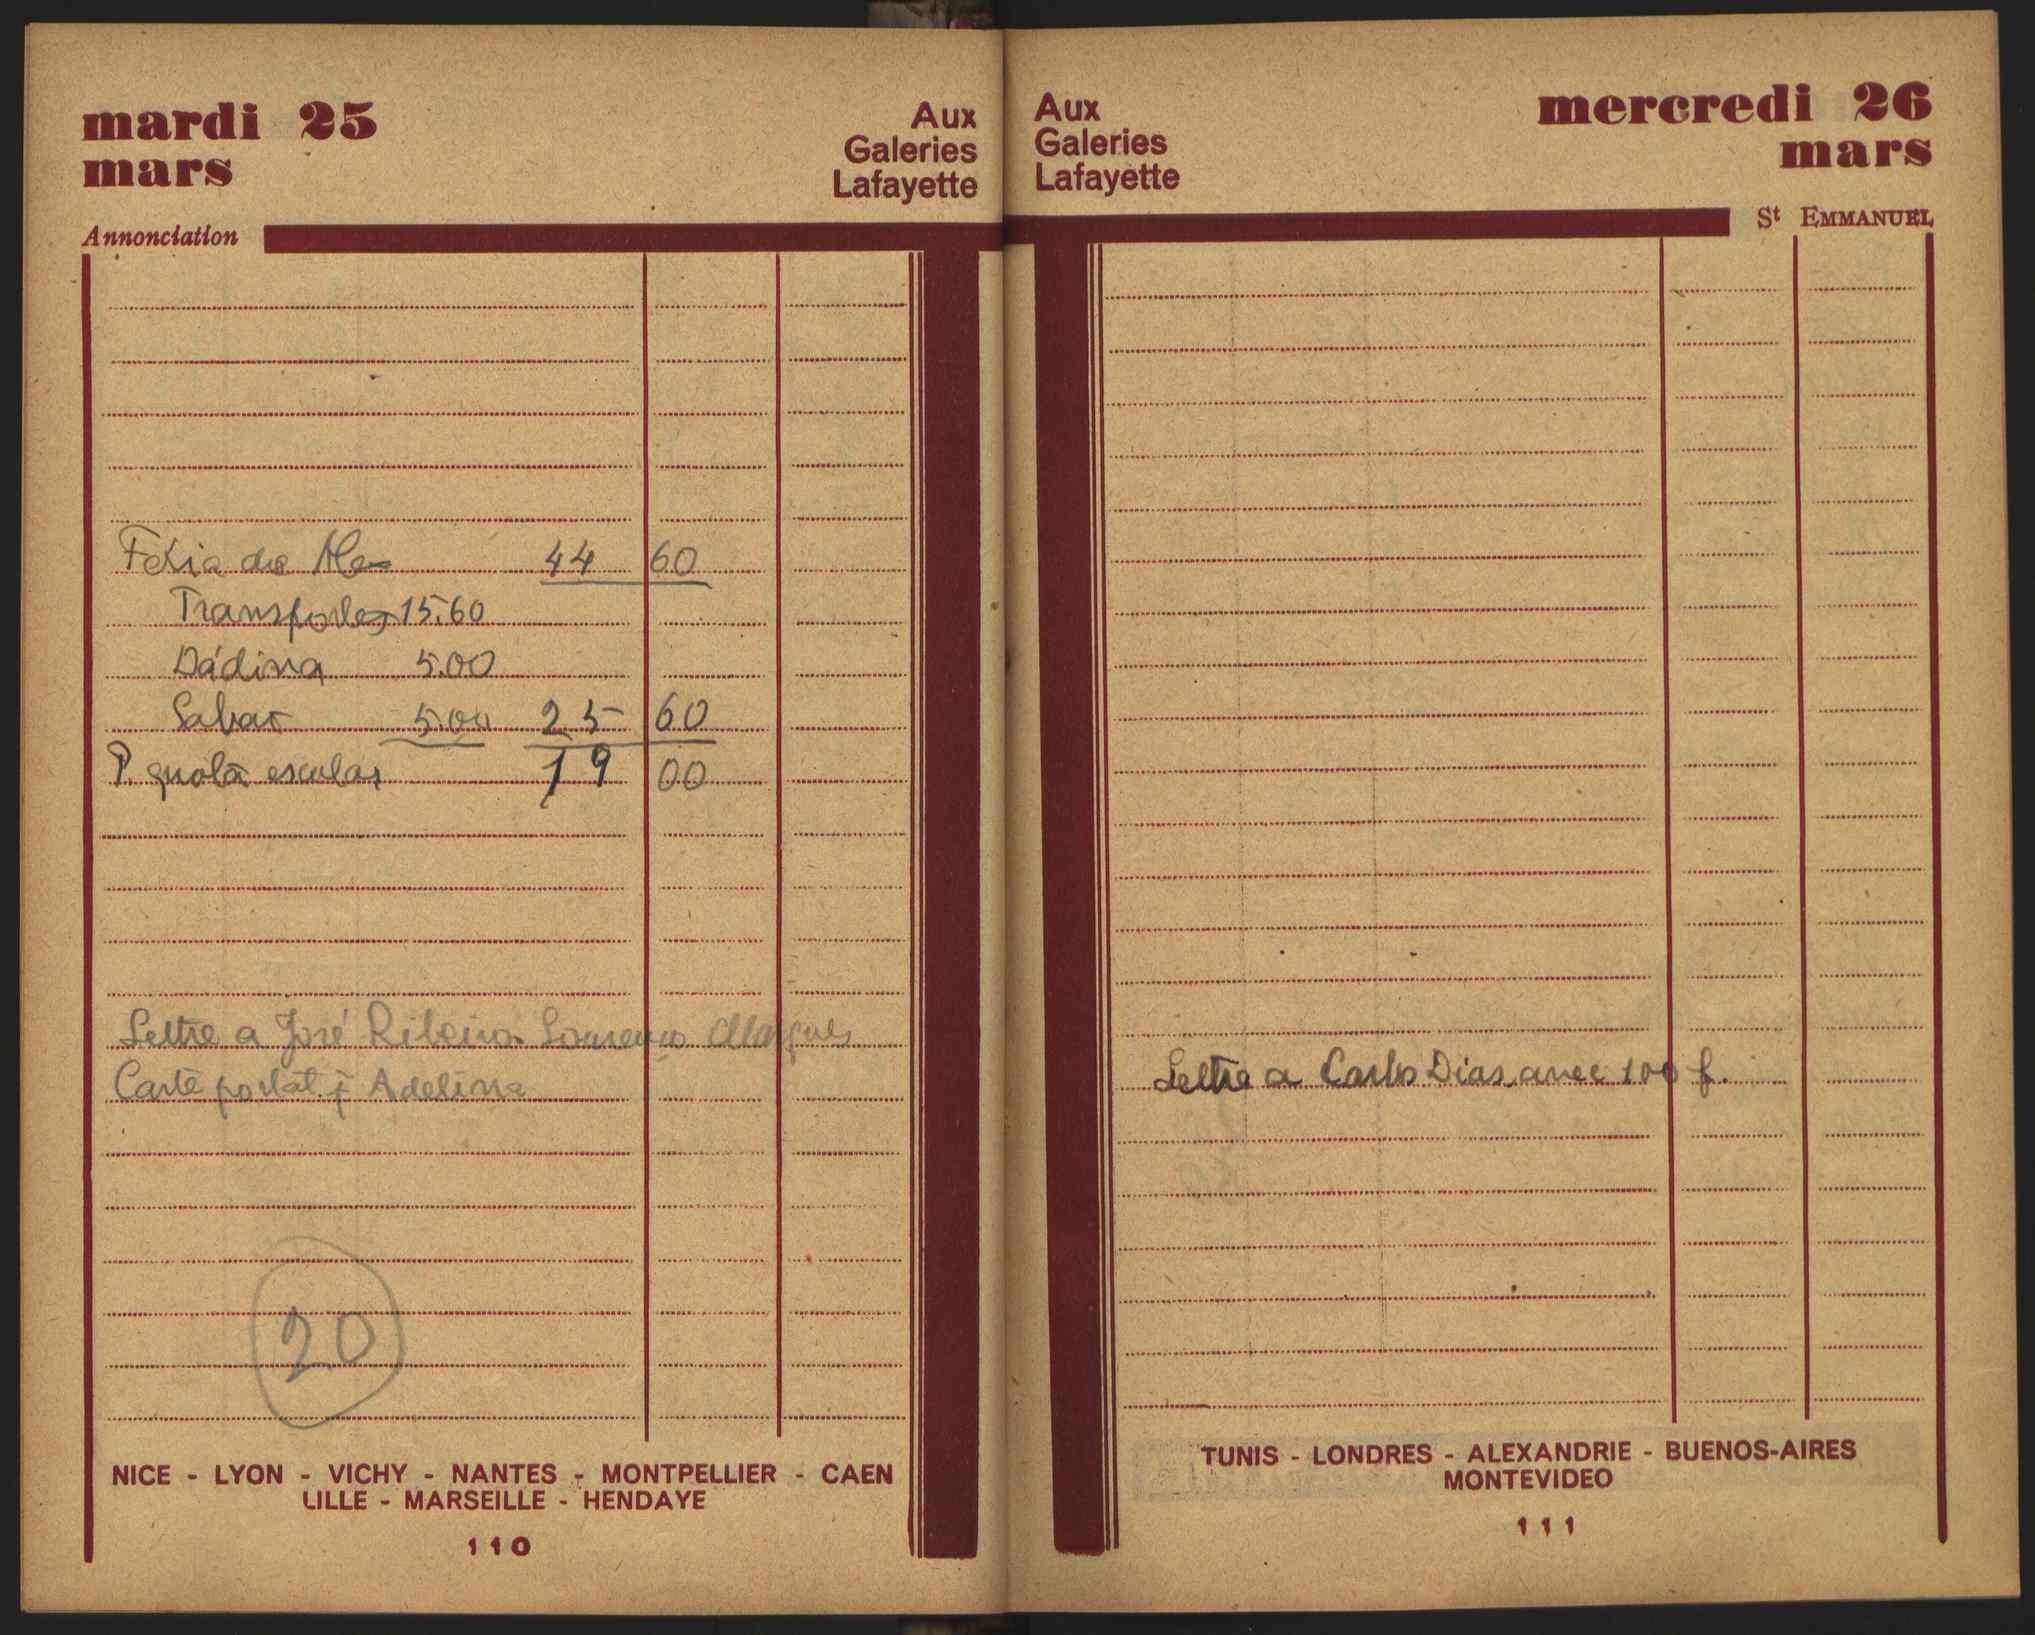 mardi 25
mars
Aux
Galeries
Lafayette
Annonciation
Féria do Mes 44 60
Transportes 15.60
Dádiva 5.00
Sabão 5.00 25 60
P. quota escolar 19 00
Lettre a José Ribeiro Lourenço Marques
Carte postal p Adelina
20
NICE - LYON - VICHY - NANTES - MONTPELLIER - CAEN
LILLE - MARSEILLE - HENDAYE
110
Aux
Galeries
Lafayette
mercredi 26
mars
St EMMANUEL
Lettre a Carlos Dias avec 100 f.
TUNIS - LONDRES - ALEXANDRIE - BUENOS-AIRES
MONTEVIDEO
111